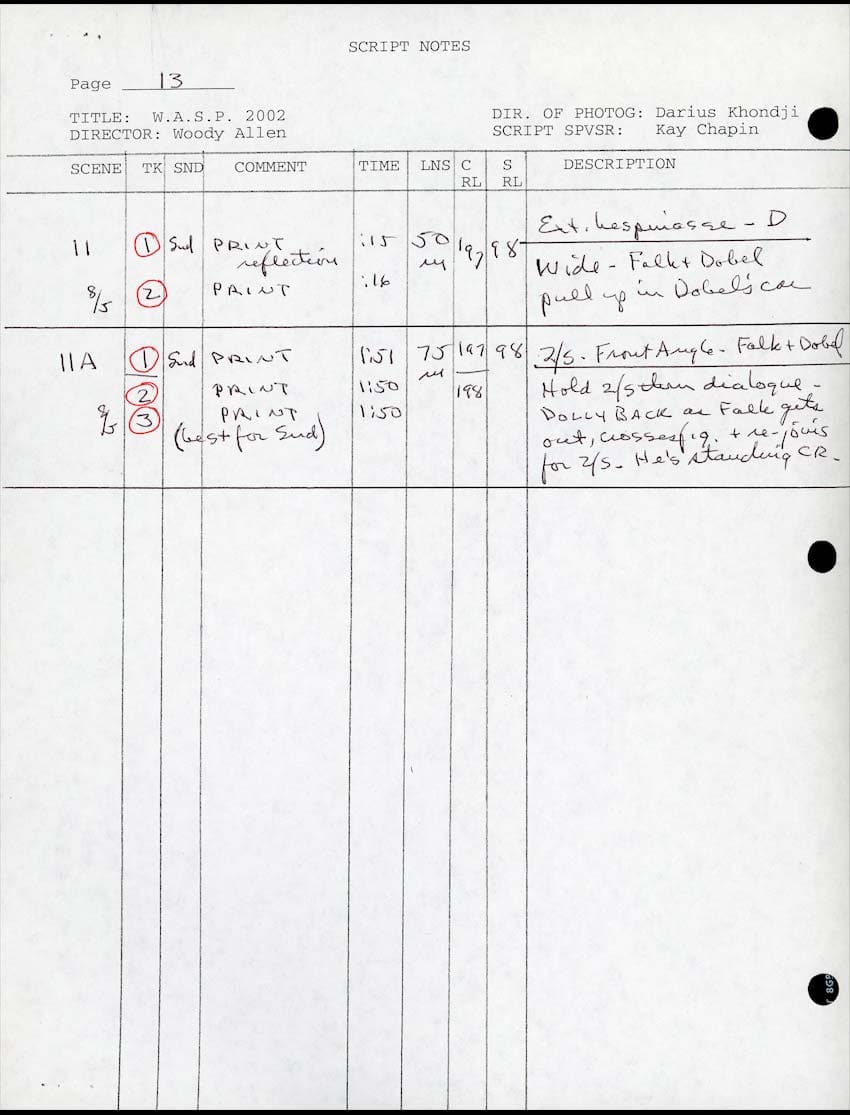 SCRIPT NOTES
Page 13
TITLE: W.A.S.P. 2002 DIR. OF PHOTOG: Darius Khondji
DIRECTOR: Woody Allen SCRIPT SPVSR: Kay Chapin
SCENE TK SND COMMENT TIME LNS C RL S RL DESCRIPTION
Ext. Lespinasse - D
11 1 Snd PRINT :15 50 197 98
reflection m Wide - Falk + Dobel
8/5 2 PRINT :16 pull up in Dobel's car
11A 1 Snd PRINT 1:51 75 197 98 2/s. Front Angle - Falk + Dobel
2 PRINT 1:50 m 198 Hold 2/s thru dialogue -
8/5 3 PRINT 1:50 DOLLY BACK as Falk gets
(best for Snd) out, crosses f.g. + re-joins
for 2/s. He's standing CR.